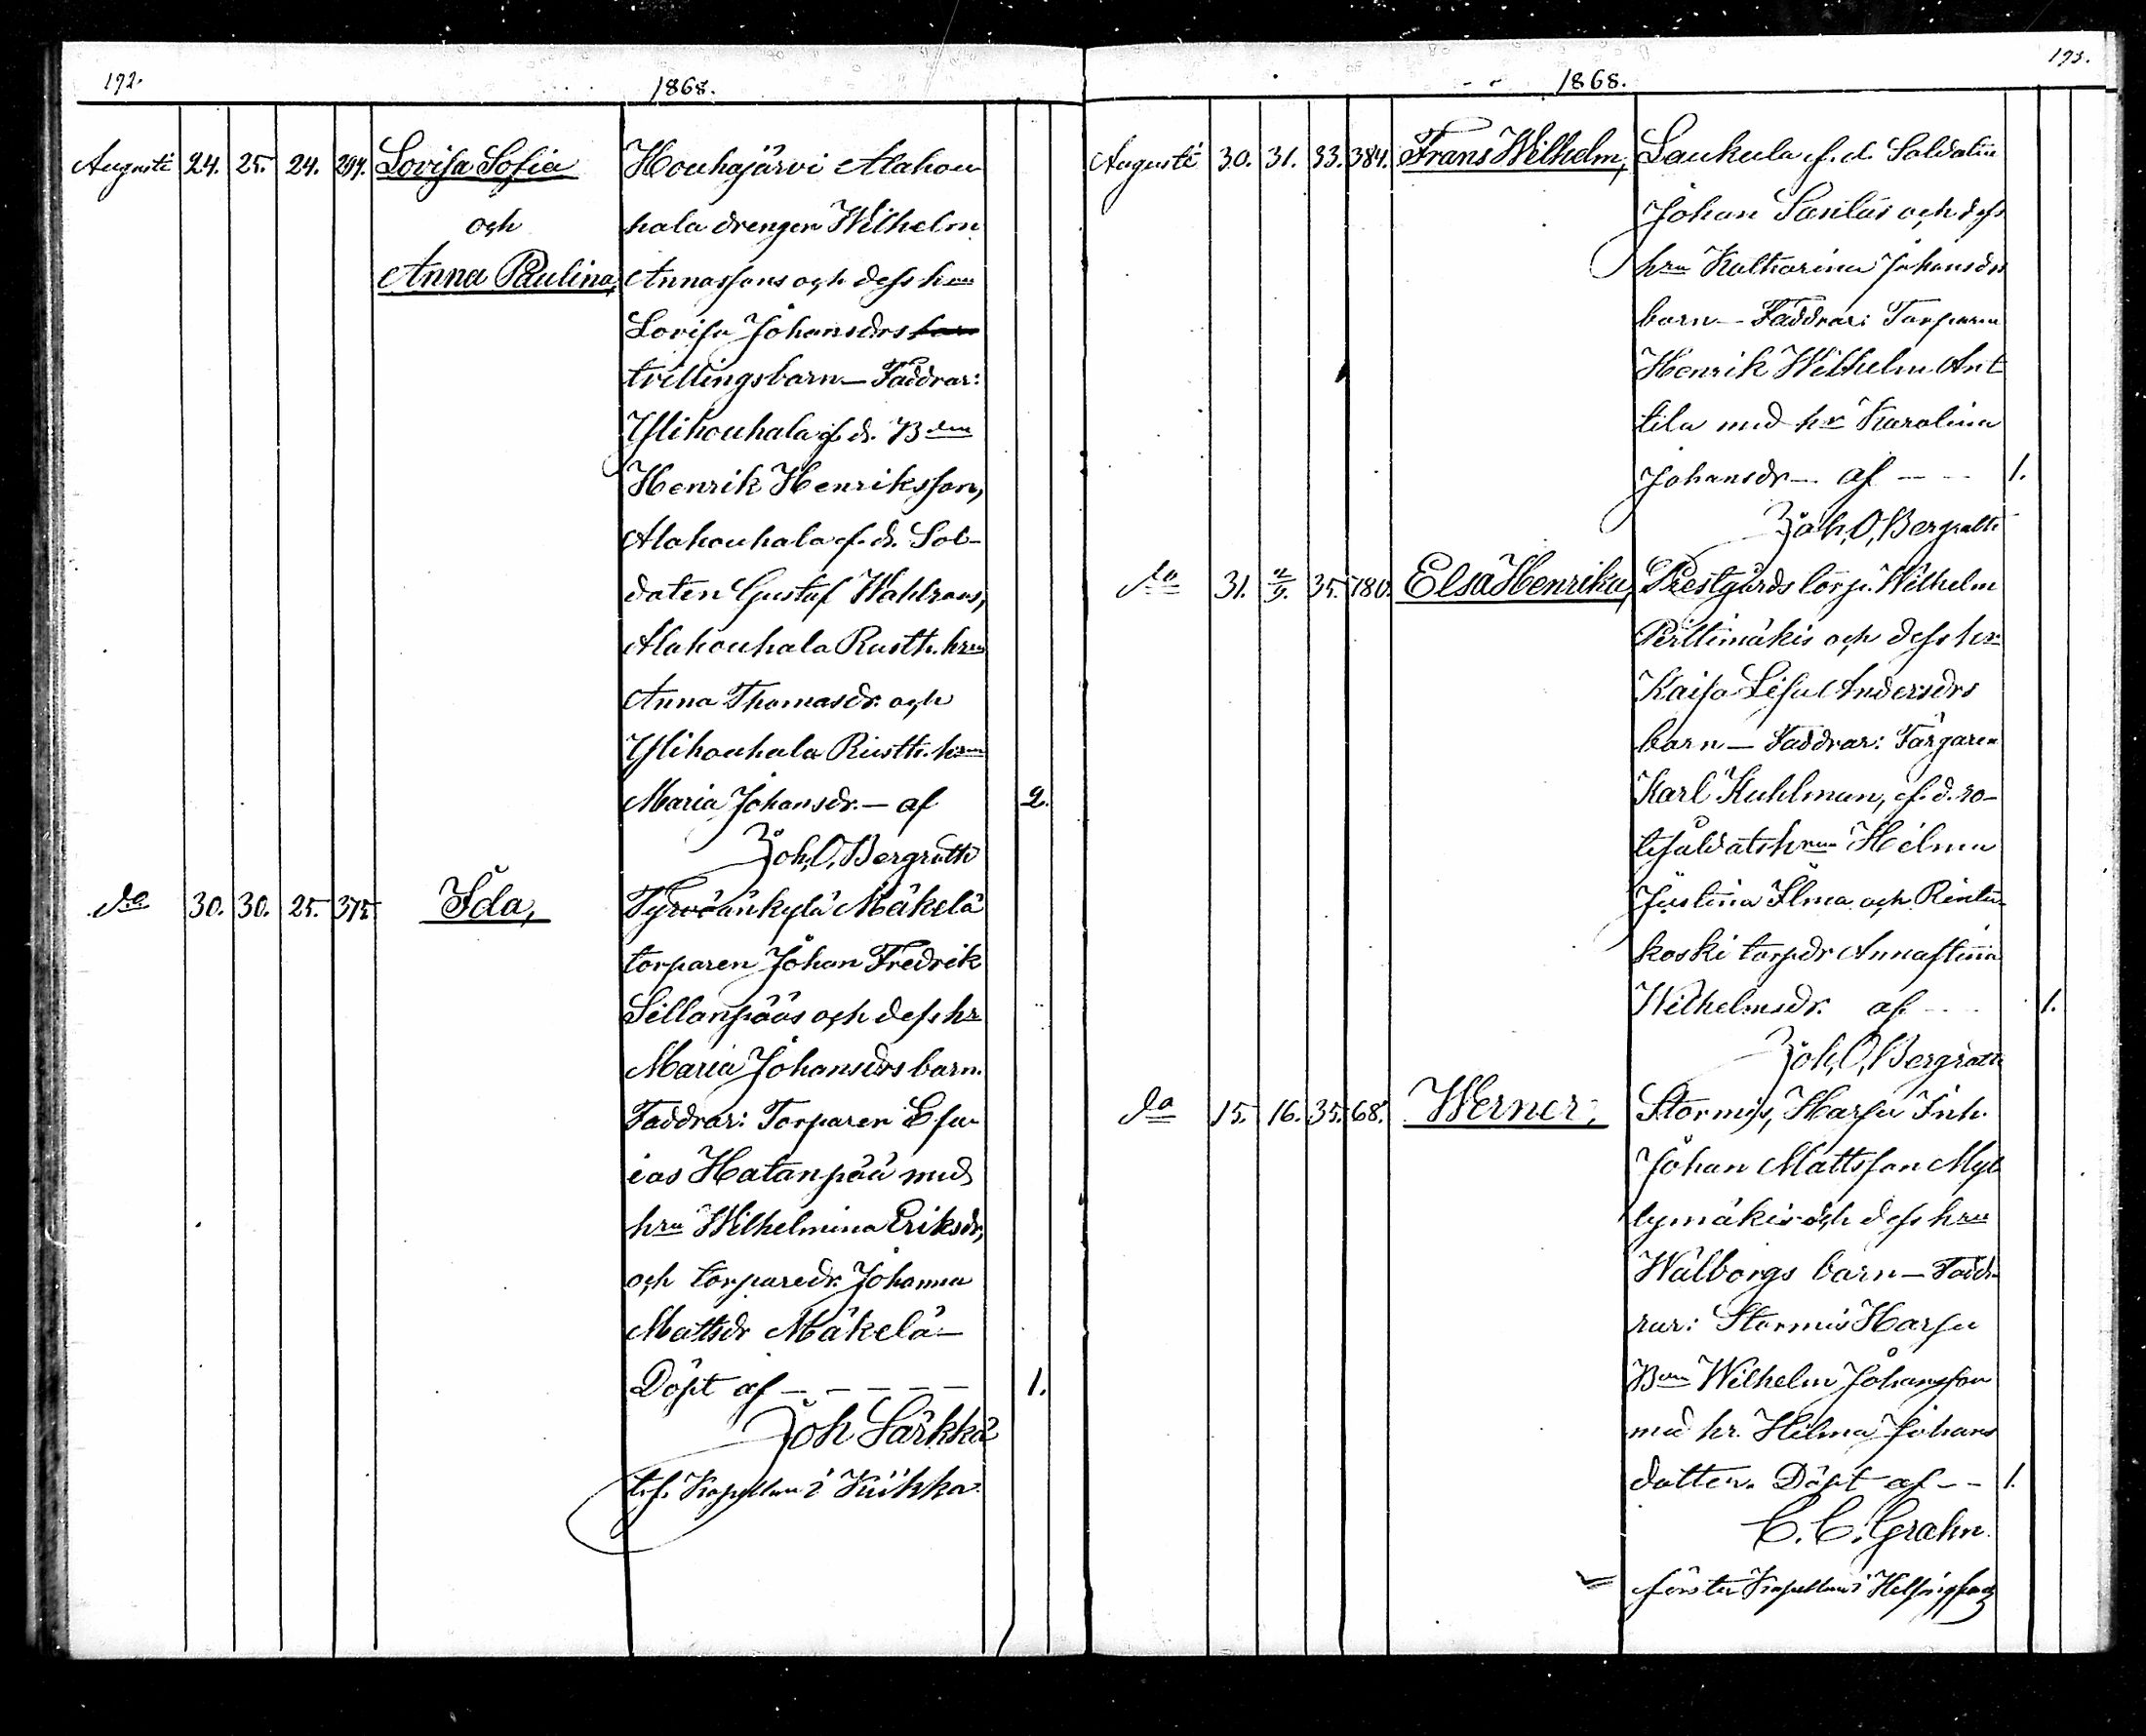 192.
1868.
Augusti 24. 25. 24. 297. Lovisa Sofia
och
Anna Paulina,
Houhajärvi Alahou
hala drengen Wilhelm
Annassons och dess hru
Lovisa Johansdrs barn
tvillingsbarn — Faddrar:
Ylihouhala f. d. Bdn
Henrik Henriksson,
Alahouhala f. d. Sol-
daten Gustaf Wahlroos,
Alahouhala Rusth. hru
Anna Thomasdr. och
Ylihouhala Rusth. hru
Maria Johansdr. — af 2.
Joh. O. Bergroth
do 30. 30. 25. 375. Ida,
Tyrväänkylä Mäkelä
torparen Johan Fredrik
Sillanpääs och dess hr
Maria Johansdrs barn.
Faddrar: Torparen Esa-
ias Hatanpää med
hru Wilhelmina Eriksdr,
och torparedr. Johanna
Mattsdr Mäkelä —
Döpt af — — — — — 1.
Joh Särkkä
t.f. Kapellan i Kiikka.
193.
1868.
Augusti 30. 31. 33. 384. Frans Wilhelm,
Laukula f. d. Soldaten
Johan Saxlüs och dess
hru Katharina Johansdrs
barn — Faddrar: Torparen
Henrik Wilhelm Ant
tila med hr Karolina
Johansdr — af — — 1.
Joh. O. Bergroth
do 31. 2/9. 35. 780. Elsa Henrika,
Prestgårds torp. Wilhelm
Perttimäkis och dess hr
Kaisa Lisa Andersdrs
barn — Faddrar: Färgaren
Karl Kuhlman, f. d. ro-
tesoldatshrun Hilma
Justina Ilma och
koski torpdr Annastina
Wilhelmsdr. af — — 1.
Joh. O. Bergroth
do 15. 16. 35. 68. Werner,
Stormis, Harsu Inh.
Johan Mattsson Myl
lymäkis och dess hru
Walborgs barn — Fadd-
rar: Stormis Harsu
Bon Wilhelm Johansson
med hr. Hilma Johans
dotter. Döpt af — — 1.
C. C. Grahn.
förste Kapellan i Helsingfors